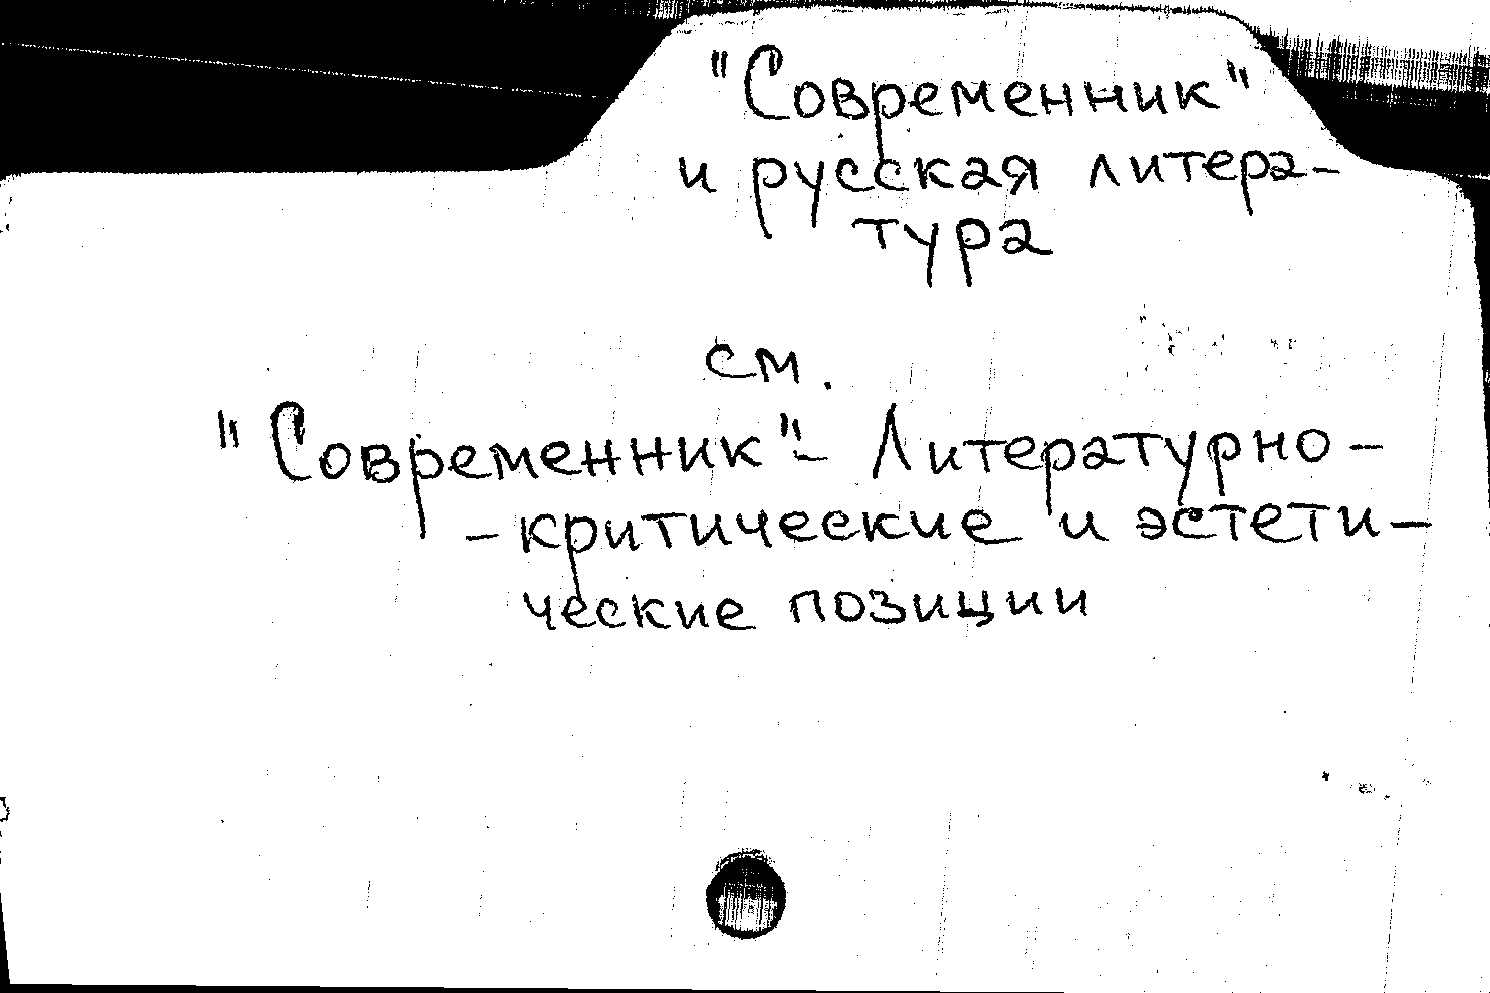 "Современник"
и русская литера-
тура
см.
"Современник" - Литературно-
- критические и эстети-
ческие позиции